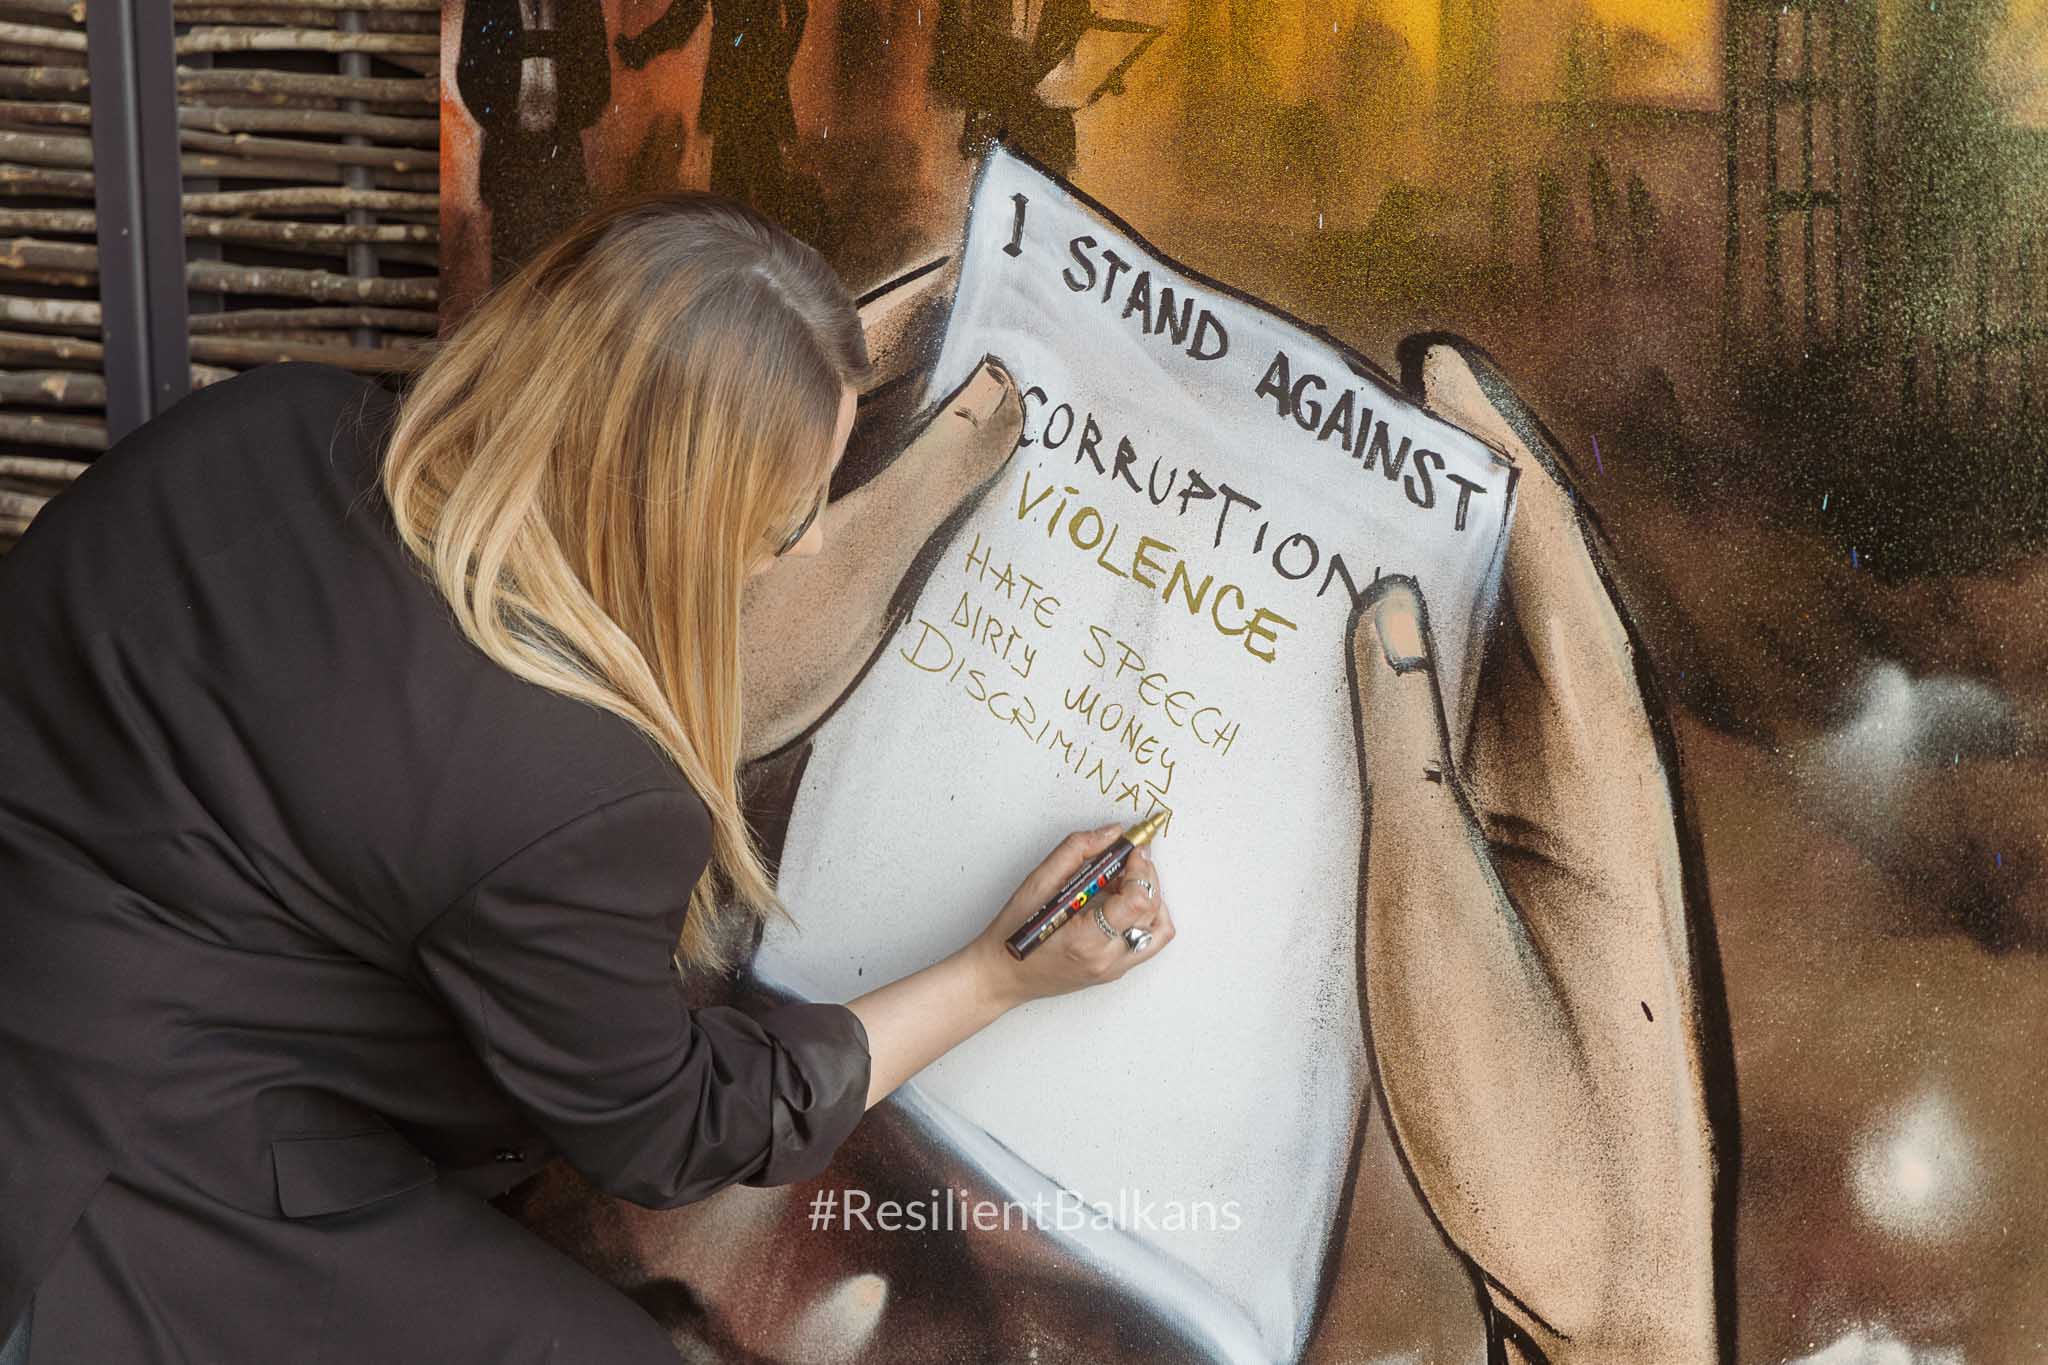 I STAND AGAINST
CORRUPTION
ViOLENCE
HATE SPEECH
DIRTY MONEY
DISCRIMINATI
#ResilientBalkans